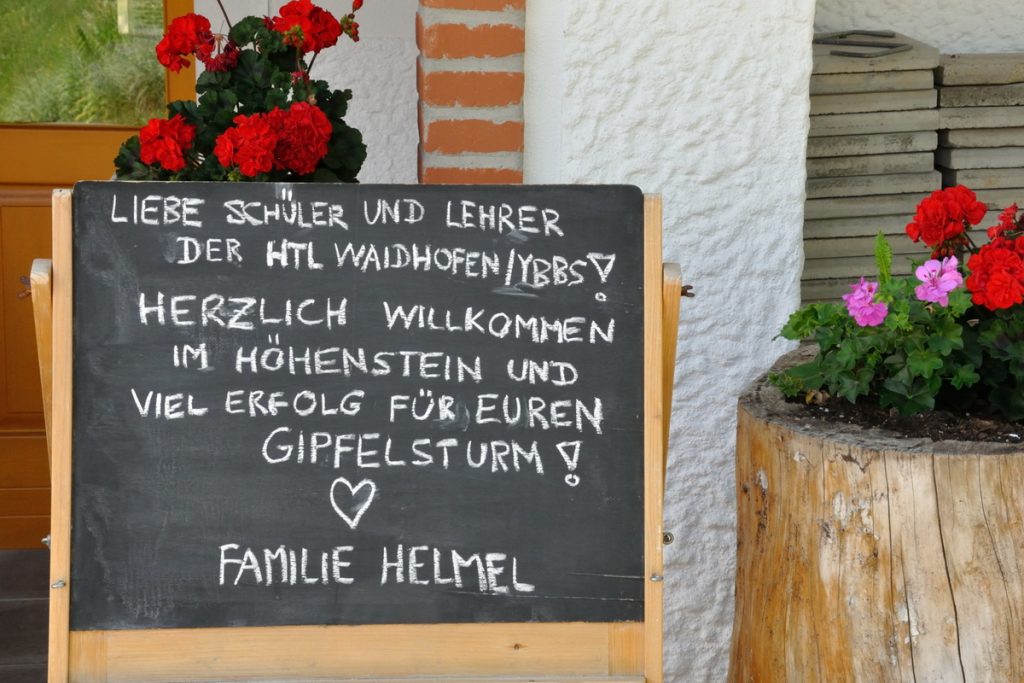 LIEBE SCHÜLER UND LEHRER
DER HTL WAIDHOFEN/YBBS!
HERZLICH WILLKOMMEN
IM HÖHENSTEIN UND
VIEL ERFOLG FÜR EUREN
GIPFELSTURM!
FAMILIE HELMEL